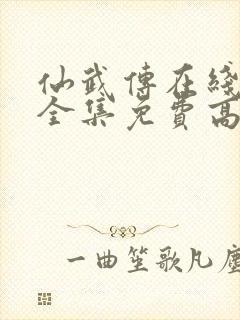 仙武傳在綫
全集免費高
一曲笙歌凡塵